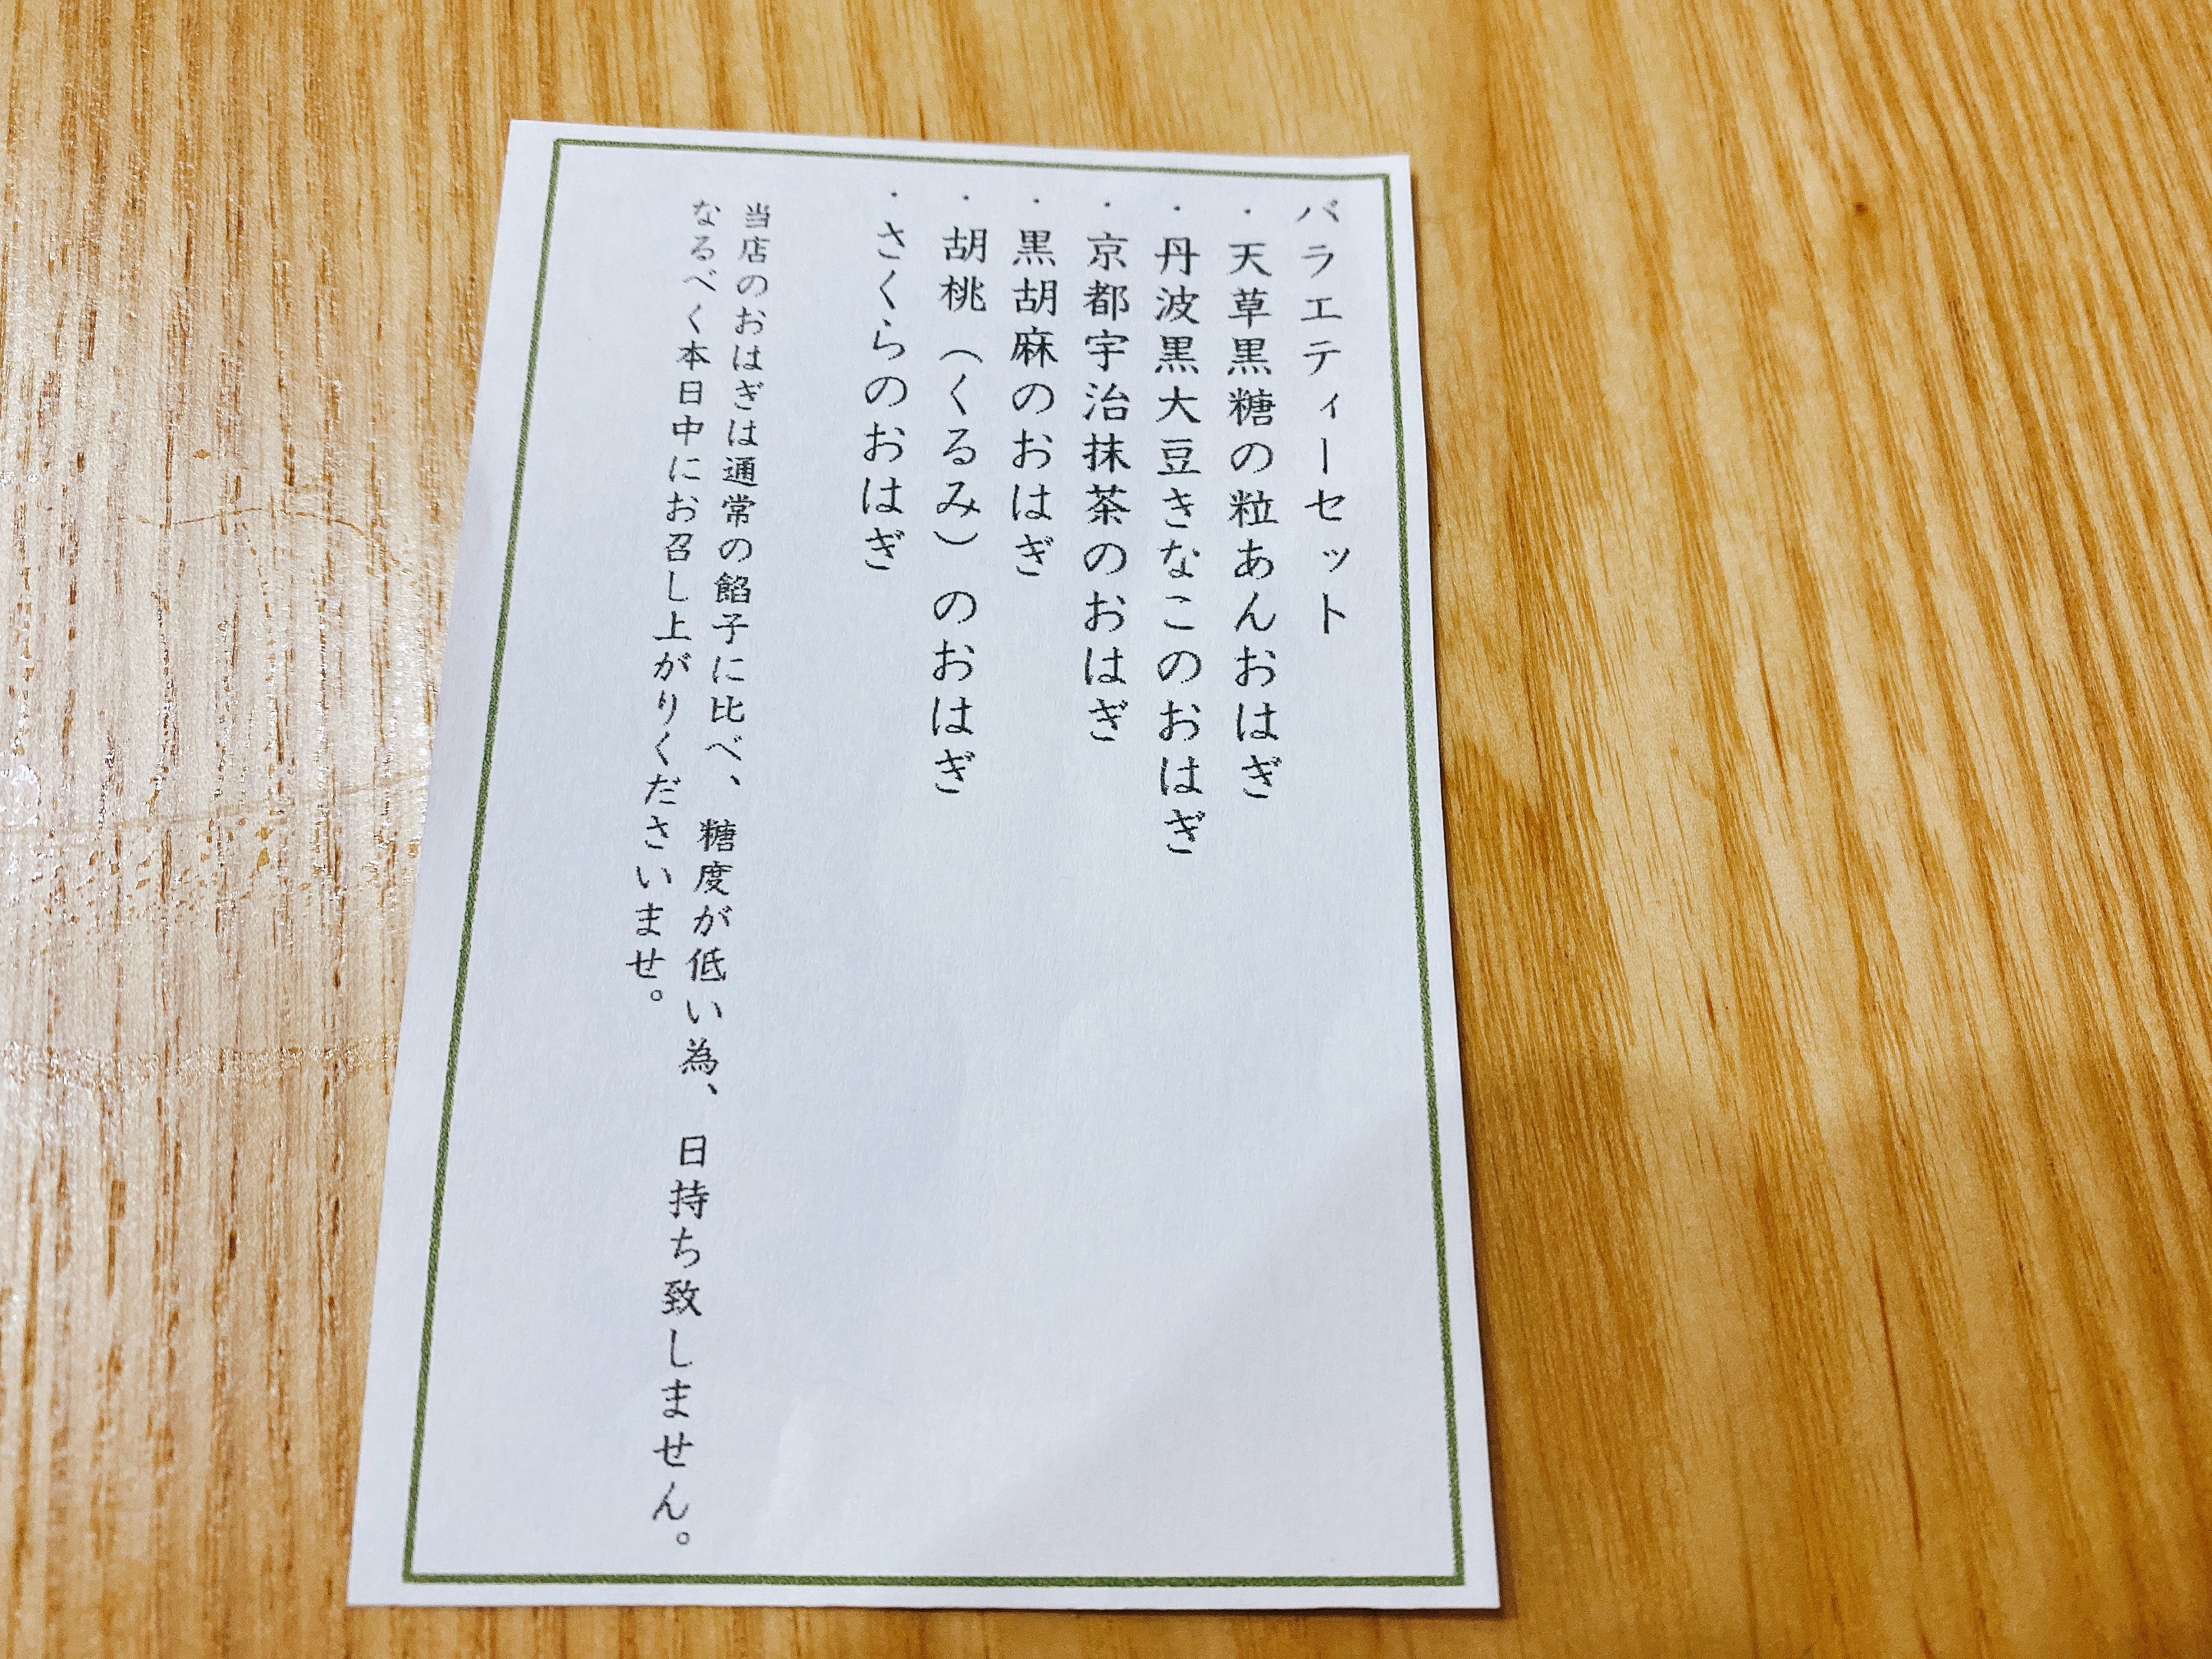 バラエティーセット
・天草黒糖の粒あんおはぎ
・丹波黒大豆きなこのおはぎ
・京都宇治抹茶のおはぎ
・黒胡麻のおはぎ
・胡桃（くるみ）のおはぎ
・さくらのおはぎ
当店のおはぎは通常の餡子に比べ、糖度が低い為、日持ち致しません。
なるべく本日中にお召し上がりくださいませ。